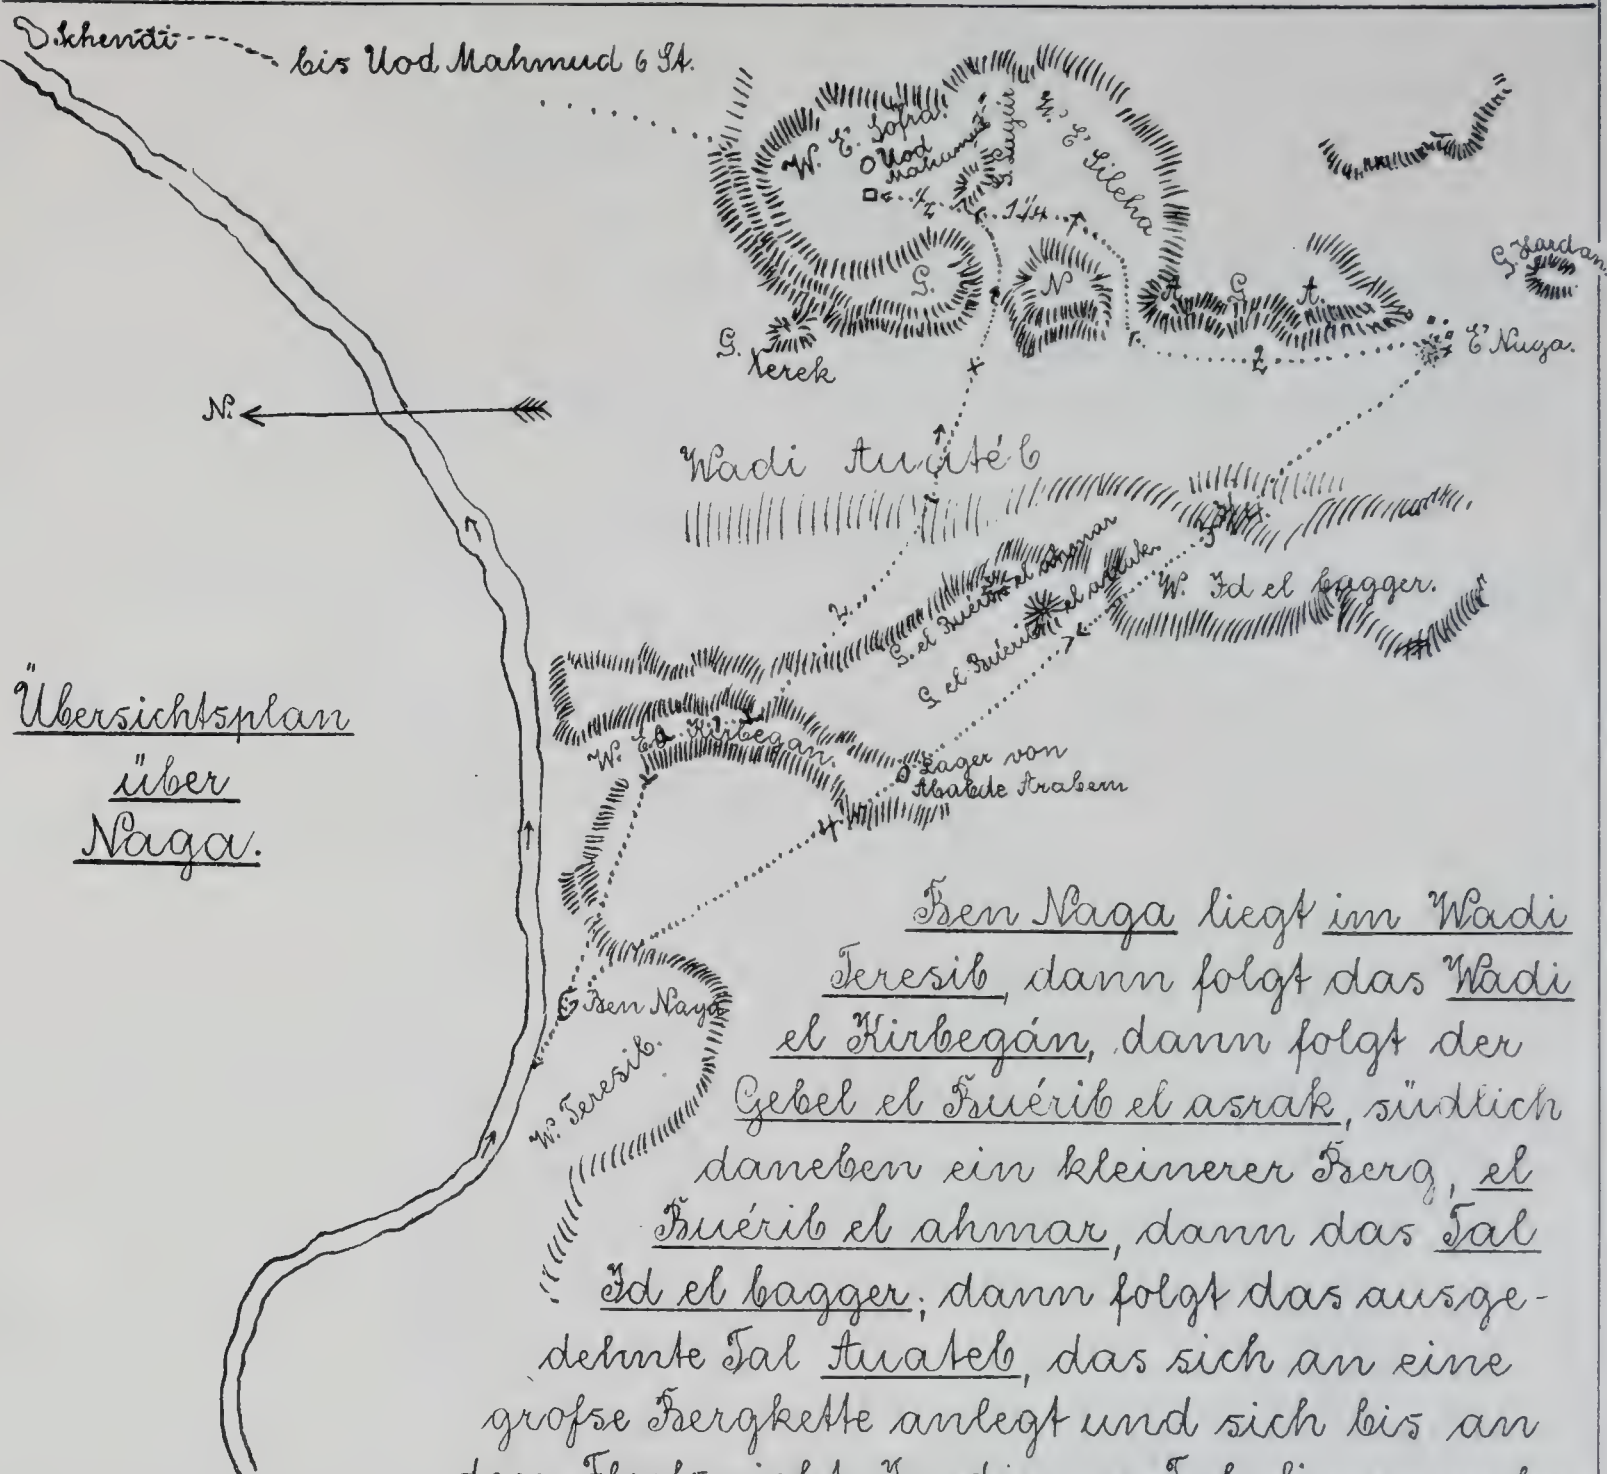 Schendi
bis Uod Mahmud 6 St.
W. E. Sofra.
Uod
Mahamud
W. E' Sileha
1/2
1 1/4
G.
N
A. G A.
G. Xardan.
G.
Xerek
2
E' Naga.
N.
Wadi Auatéb
2
G. el Buérib el ahmar
G el Buérib el asrak
W. Id el bagger.
Übersichtsplan
über
Naga.
W. Ed. Kirbegan.
Lager von
Ababde Arabern
4
Ben Naga
W. Teresib.
Ben Naga liegt im Wadi
Teresib, dann folgt das Wadi
el Kirbegán, dann folgt der
Gebel el Buérib el asrak, südlich
daneben ein kleinerer Berg, el
Buérib el ahmar, dann das Tal
Id el bagger; dann folgt das ausge-
dehnte Tal Auateb, das sich an eine
grofse Bergkette anlegt und sich bis an